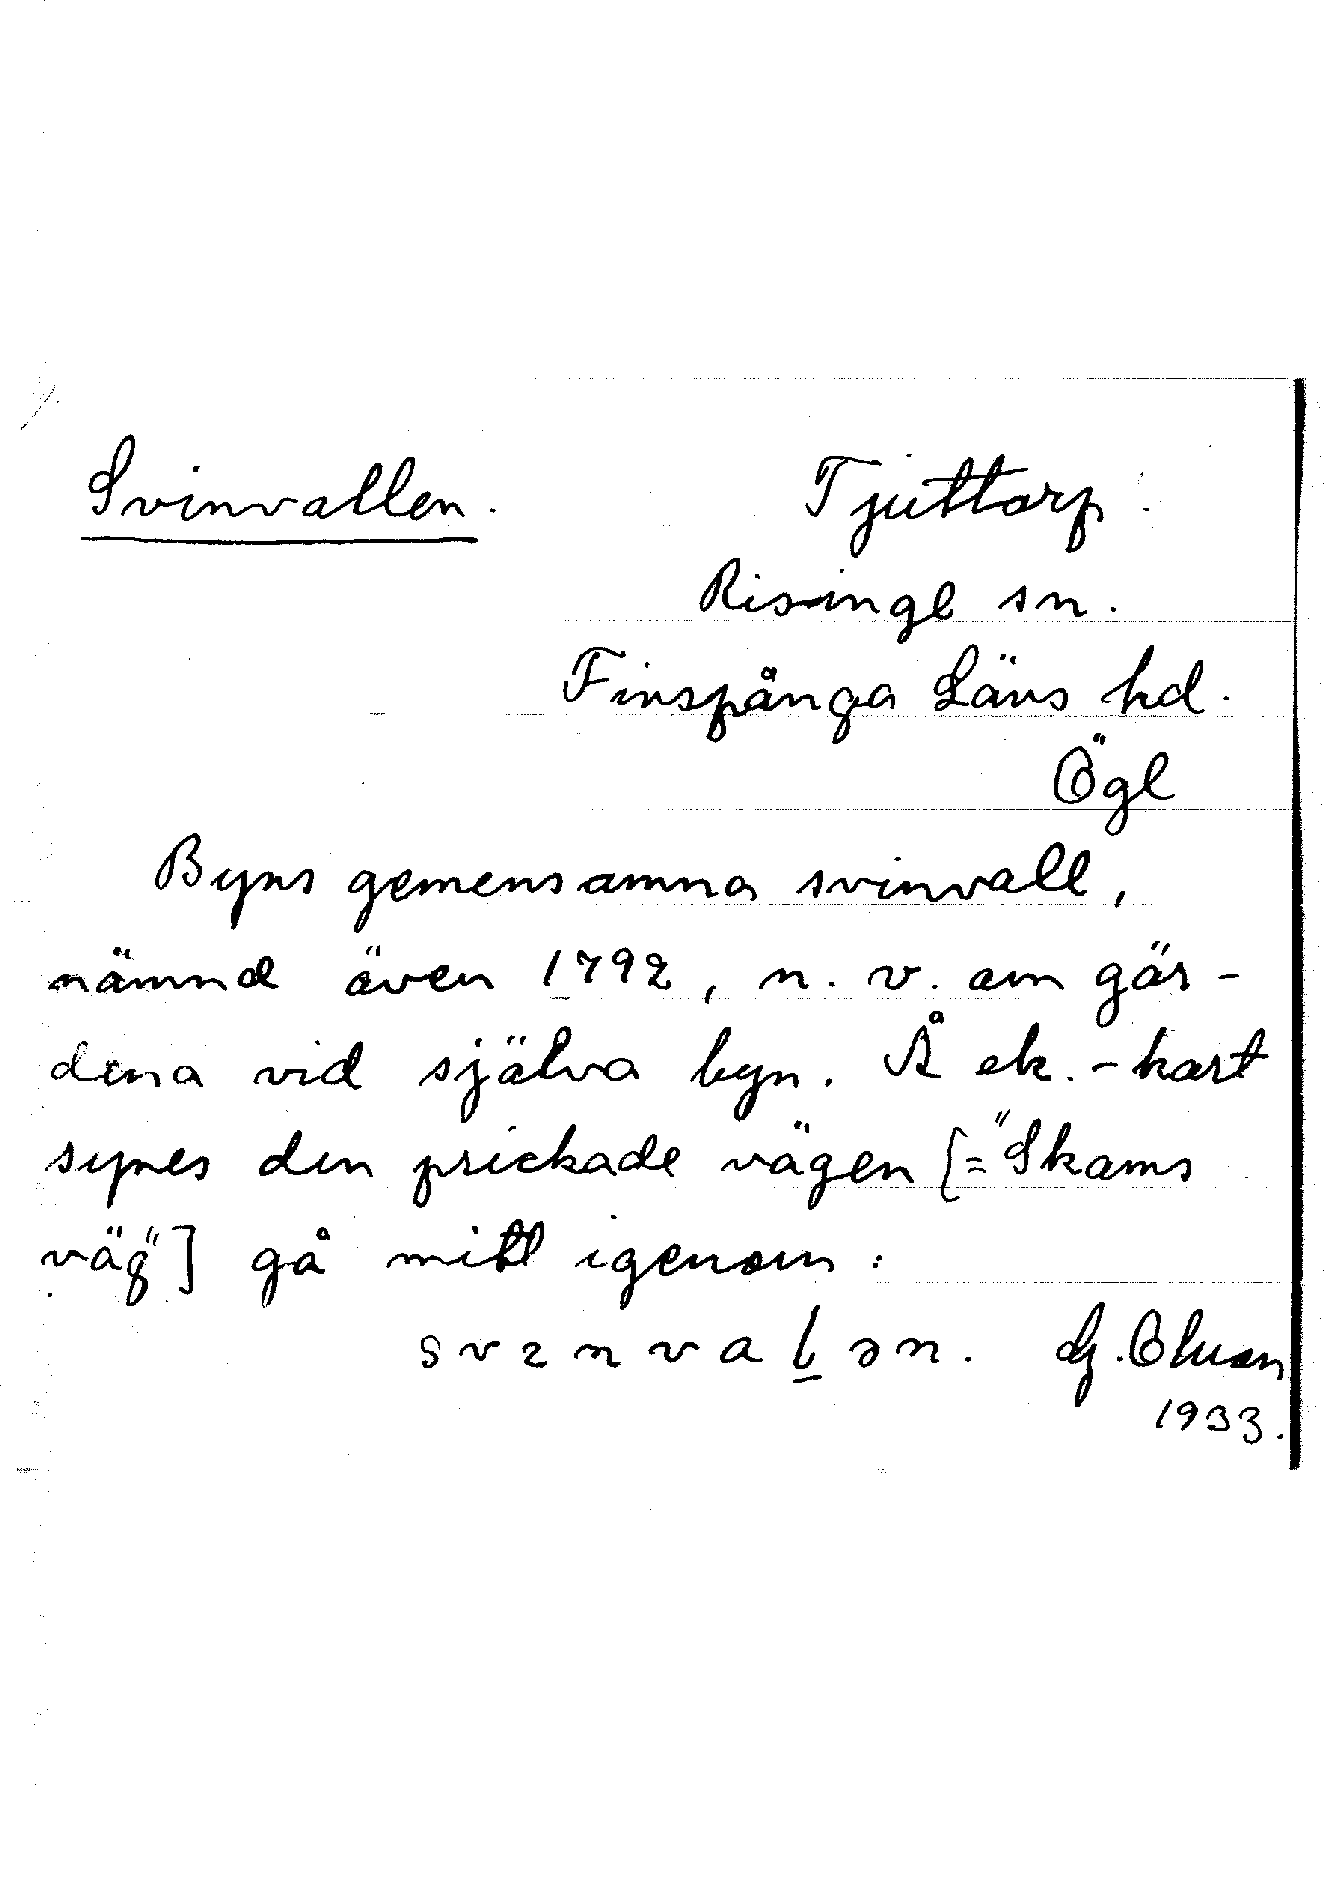 Svinvallen. Tjuttorp.
Risinge sn.
Finspånga Läns hd.
Ögl
Byns gemensamma svinvall,
nämnd även 1792, n. v. om går-
dena vid själva byn. Å ek.-kart
synes den prickade vägen [="Skams
väg"] gå mitt igenom:
svɪnvalən. G.
1933.